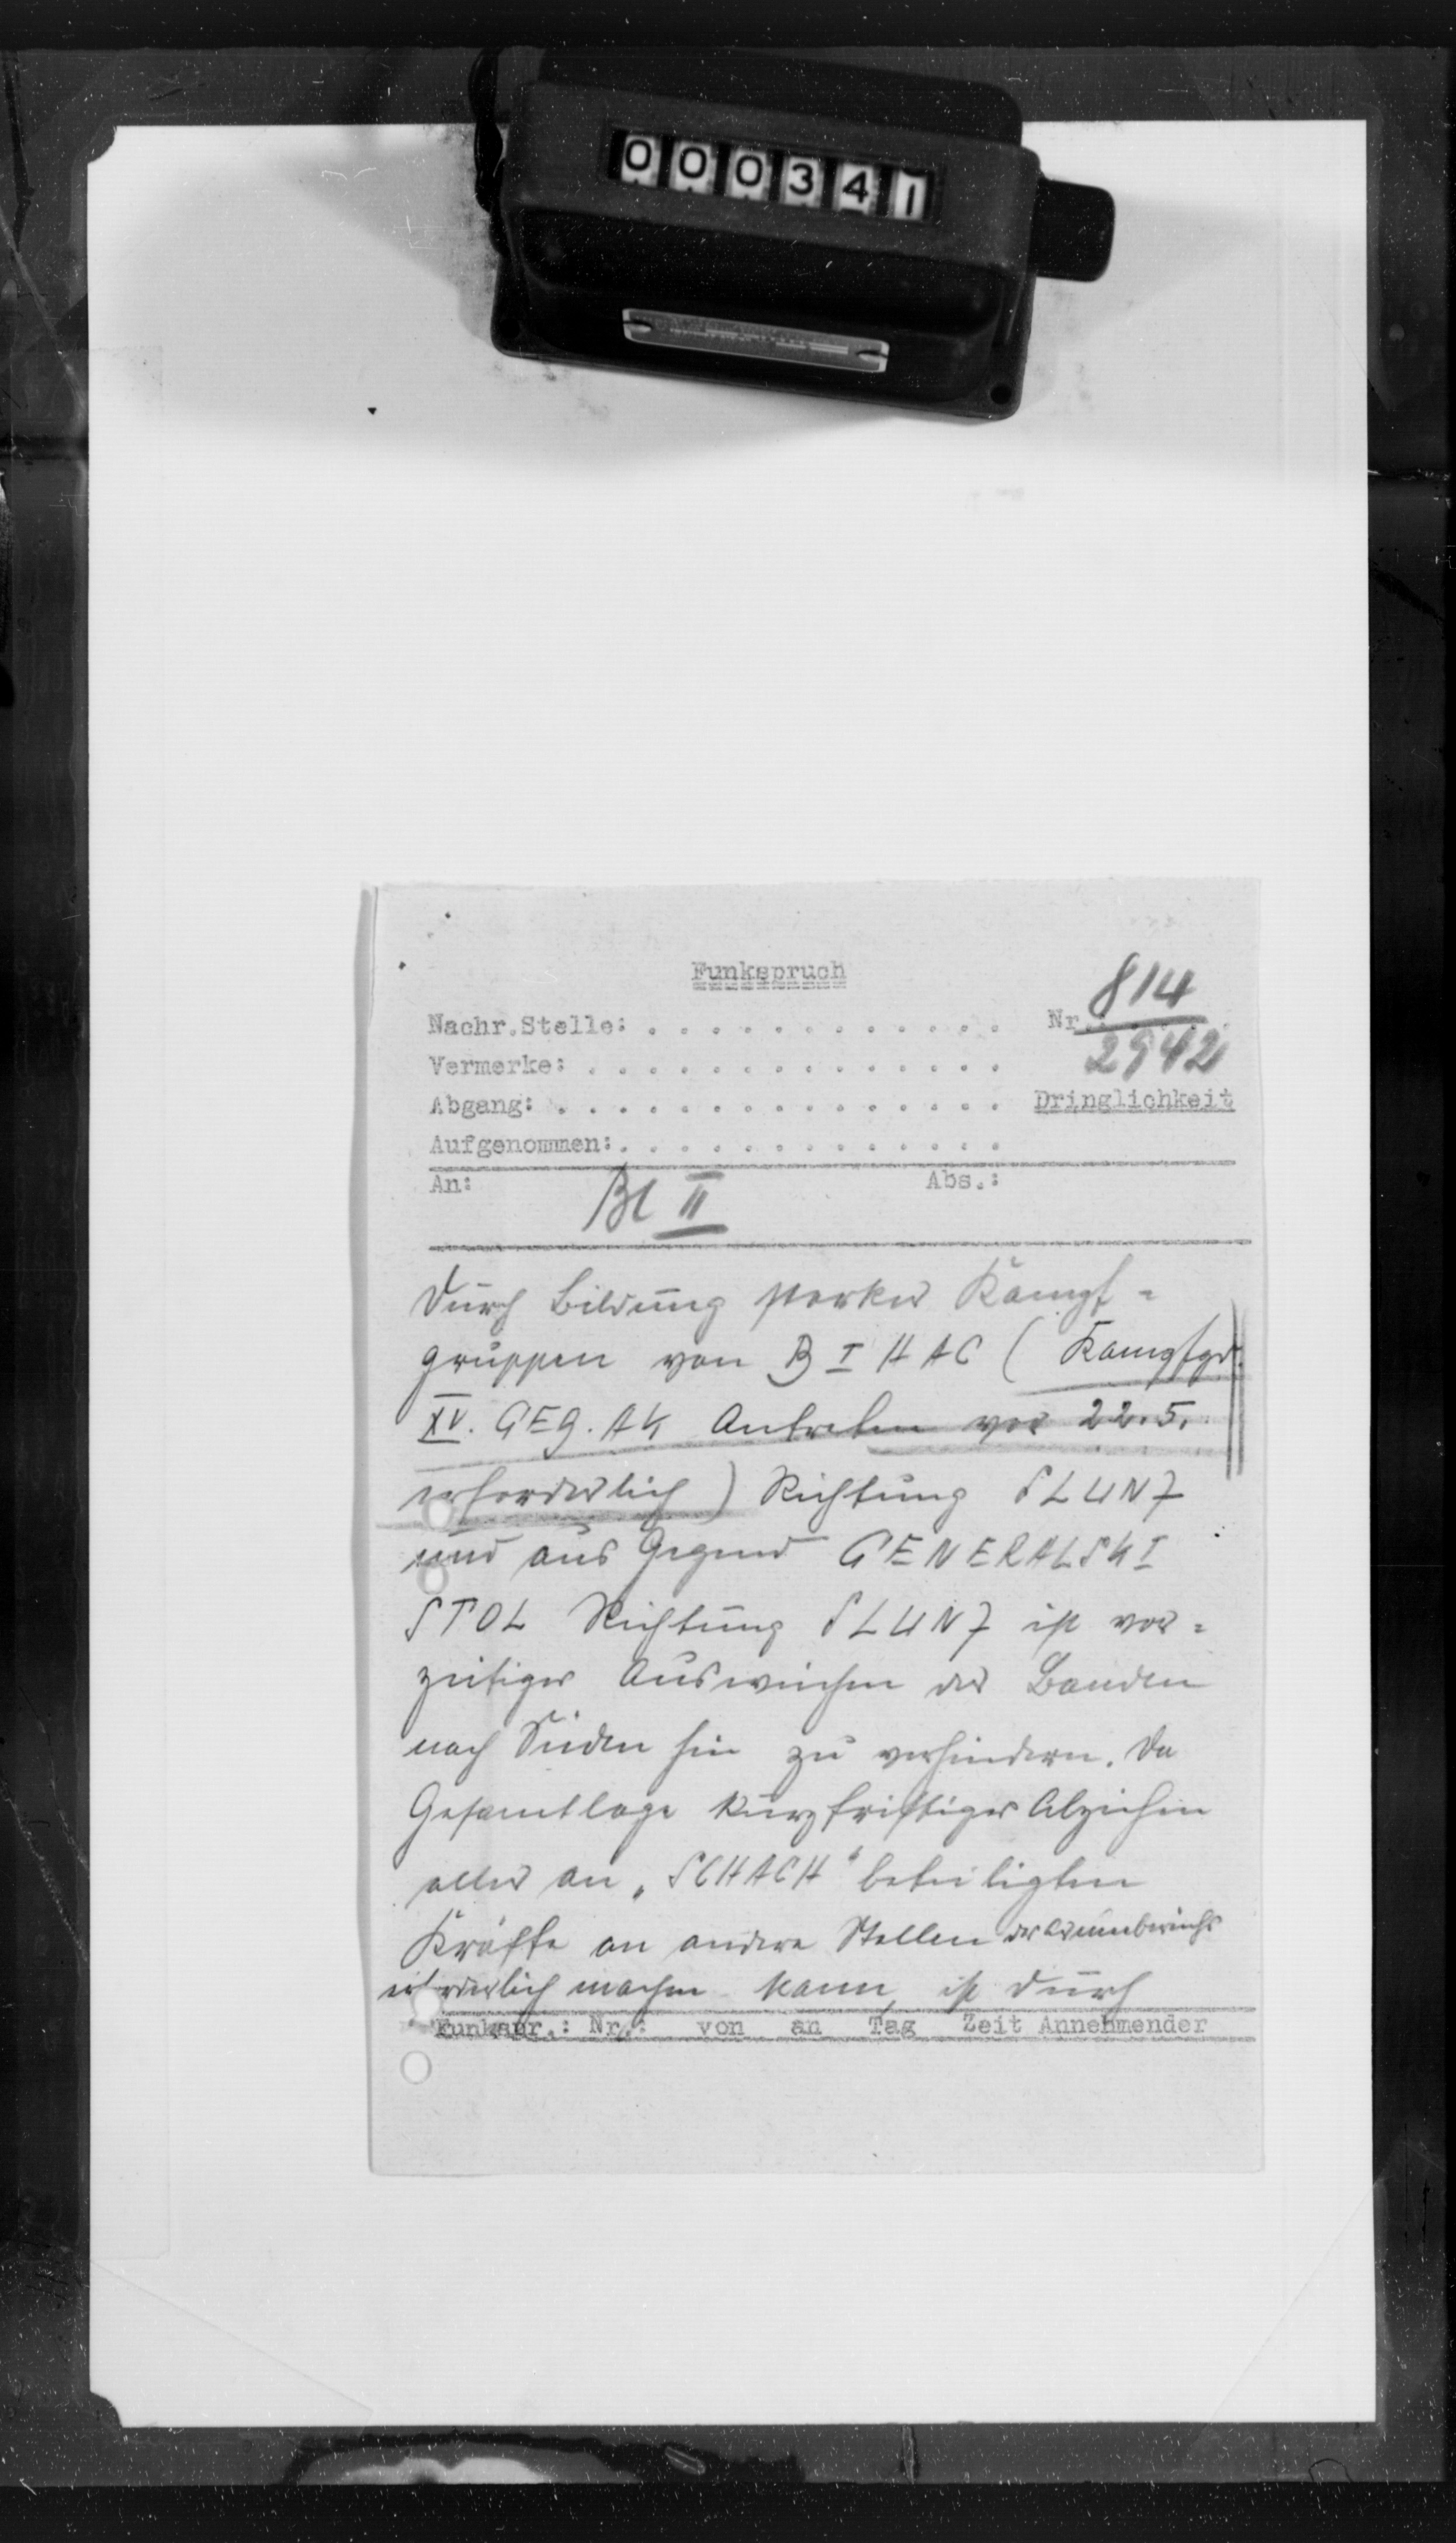 000341
Funkspruch
814
Nachr.Stelle: . . . . . . . . . . . . Nr.
2942
Vermerke: . . . . . . . . . . . . . .
Abgang: . . . . . . . . . . . . . . . Dringlichkeit
Aufgenommen: . . . . . . . . . . . . .
An: Abs.:
Bl II
Durch Bildung starker Kampf=
gruppen von BIHAC (Kampfgr.
XV. GEG. AK Antreten vor 22.5.
erforderlich) Richtung SLUNJ
und aus Gegend GENERALSKI
STOL Richtung SLUNJ ist vor=
zeitiges Ausweichen der Banden
nach Süden hin zu verhindern. Da
Gesamtlage kurzfristiges Abziehen
aller an „SCHACH" beteiligten
Kräfte an andere Stellen des
erforderlich machen kann, ist durch
Funkspr.: Nr.: von an Tag Zeit Annehmender